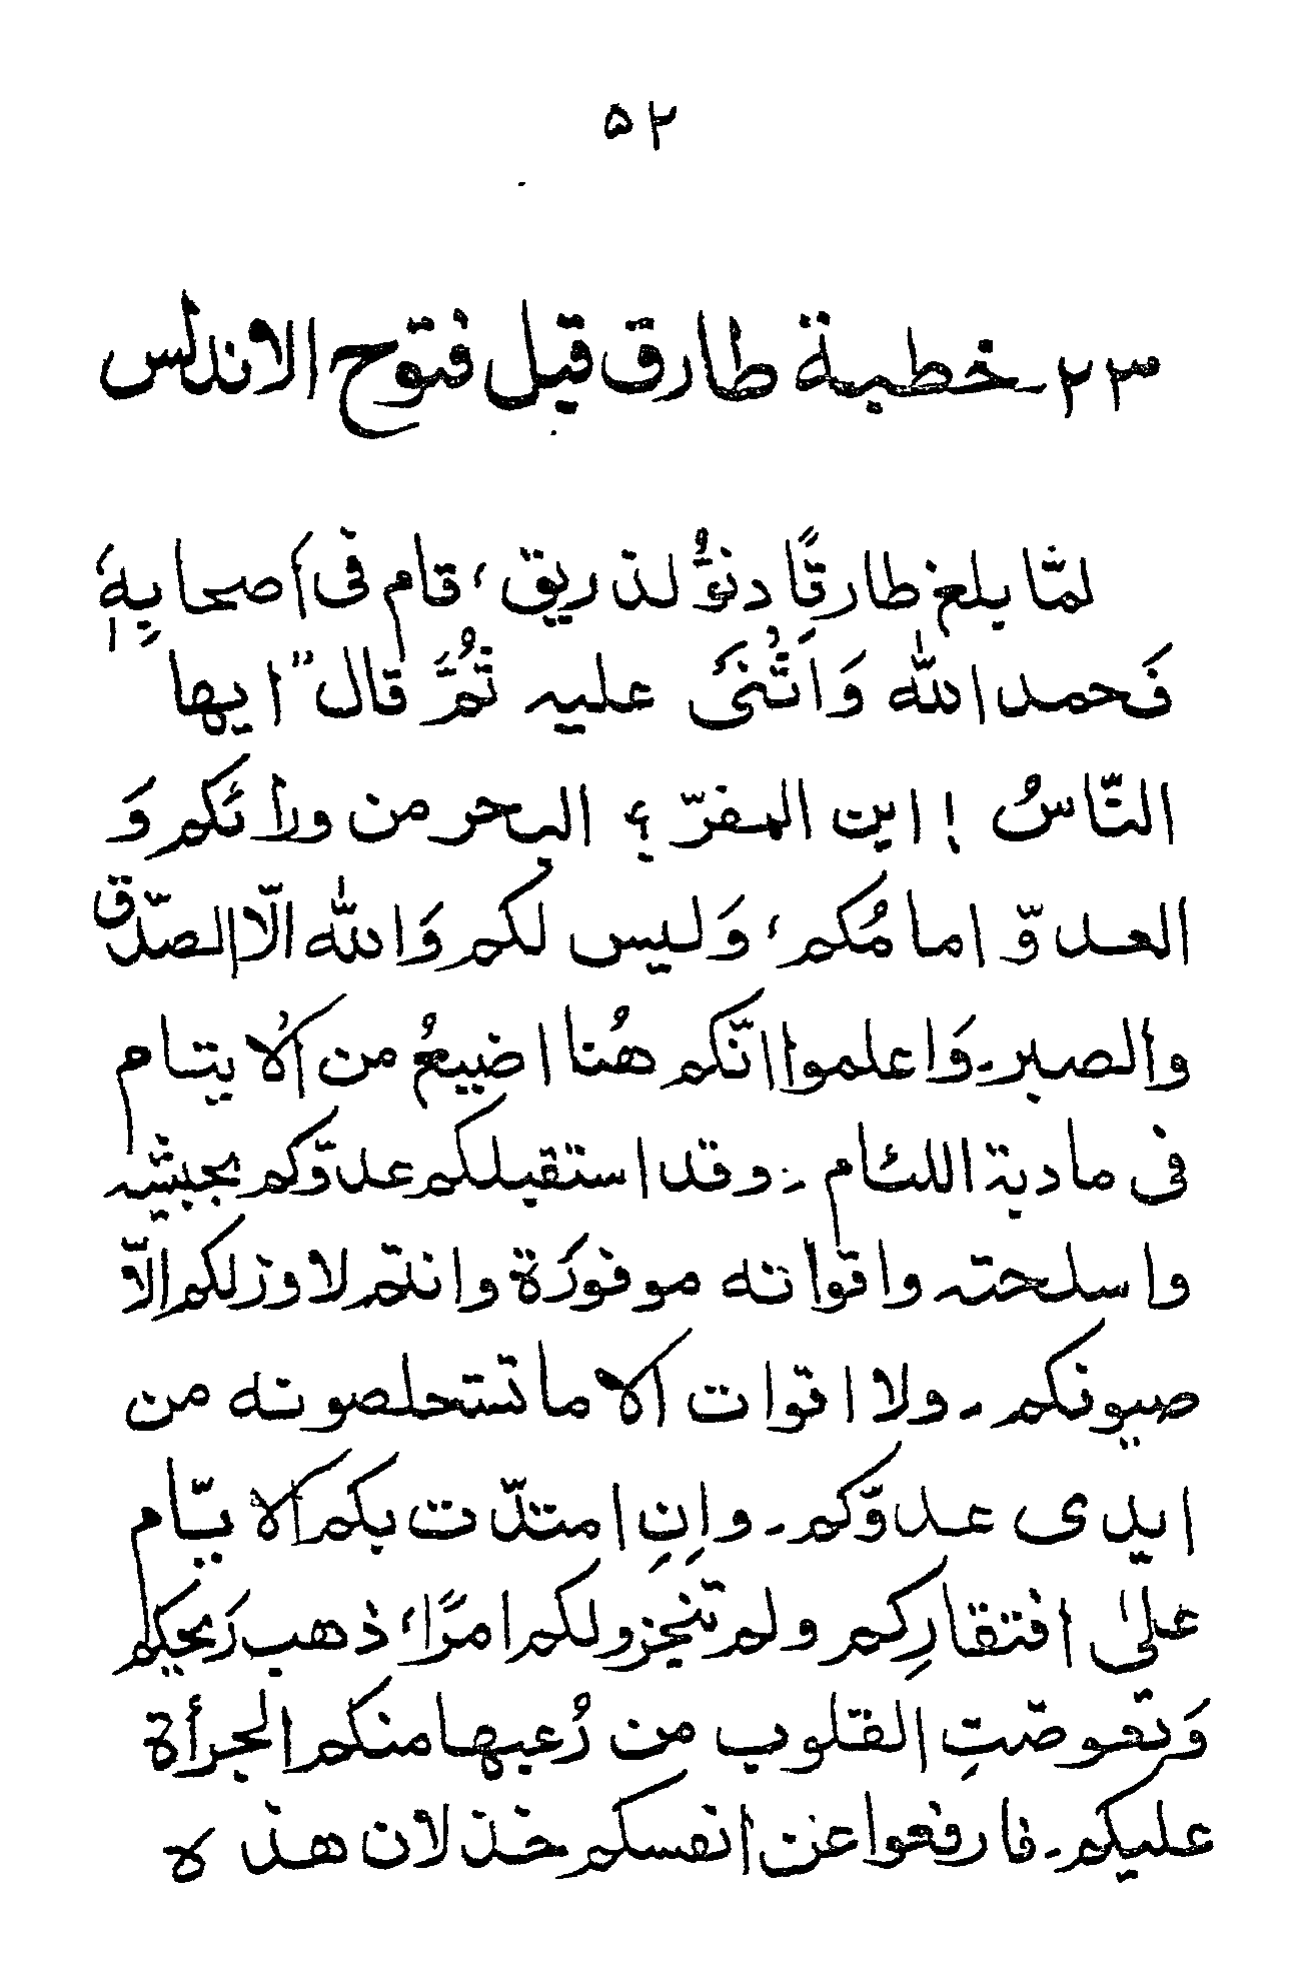 ۵۲
۲۳- خطبة طارق قبل فتوح الاندلس
لمّا بلغ طارقًا دنوُّ لذريق، قام فى أصحابِهٖ
فَحمد اللّٰه وَاَثْنىٰ عليه ثُمَّ قال "ايها
النّاسُ ! اين المفرّ ؟ البحر من ورائكم وَ
العدوّ امامُكم، وَليس لكم وَاللّٰه الّا الصّدق
والصبر۔ وَاعلموا انّكم هُنا اضيعُ من الايتام
فى مادبة اللئام ۔ وقد استقبلكم عدوّكم بجيشه
واسلحته واقواته موفورَة وانتم لا وزلكم الّا
صيونكم ۔ ولا اقوات الا ما تستحلصونه من
ايدى عدوّكم۔ واِنِ امتدّت بكم الايّام
علىٰ افتقارِكم ولم تنجزولكم امرًا، ذهب رَيحكم
وَتعوضتِ القلوب من رُعبها منكم الجرأة
عليكم۔ فارفعوا عن انفسكم خذلان هذه